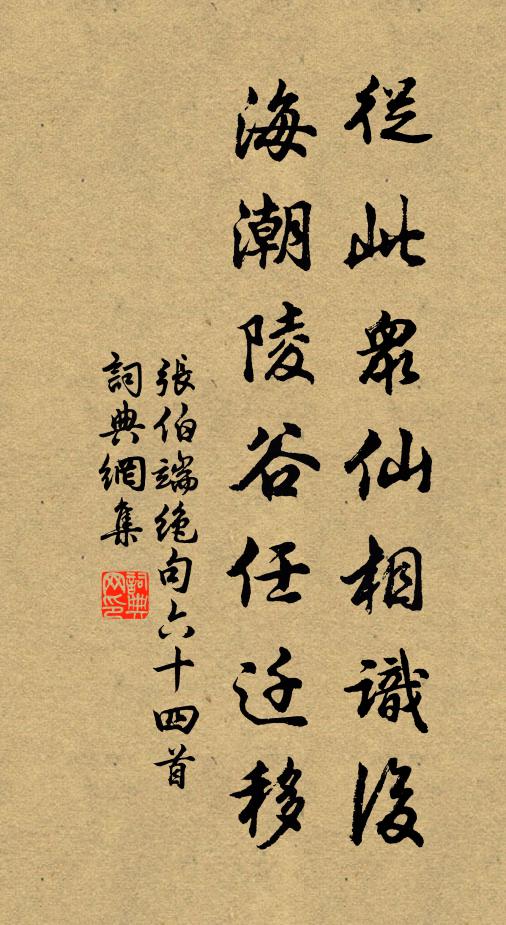 從此衆仙相識後
海潮陵谷任迁移
張伯端絶句六十四首
詞典網集
詞典网印